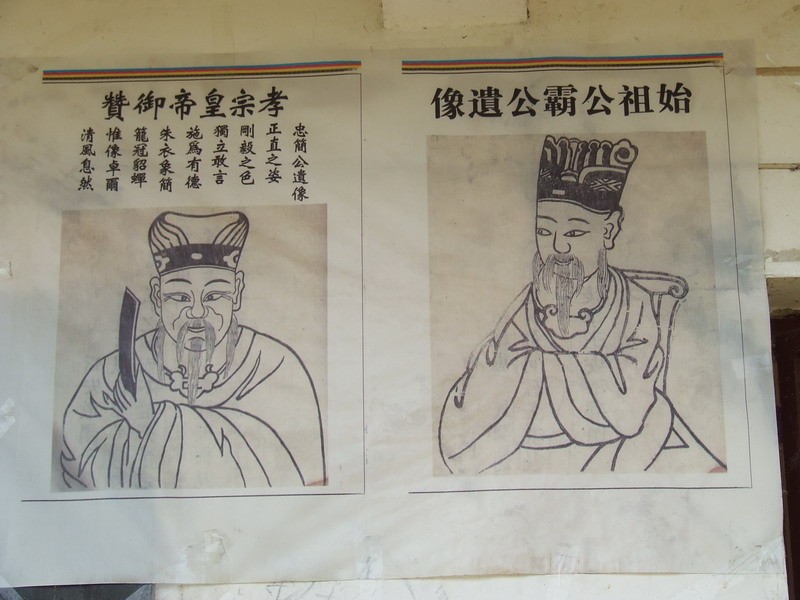 始祖公霸公遺像
孝宗皇帝御贊
忠簡公遺像
正直之姿
剛毅之色
獨立敢言
施爲有德
朱衣象簡
籠冠貂蟬
惟像卓爾
清風息然